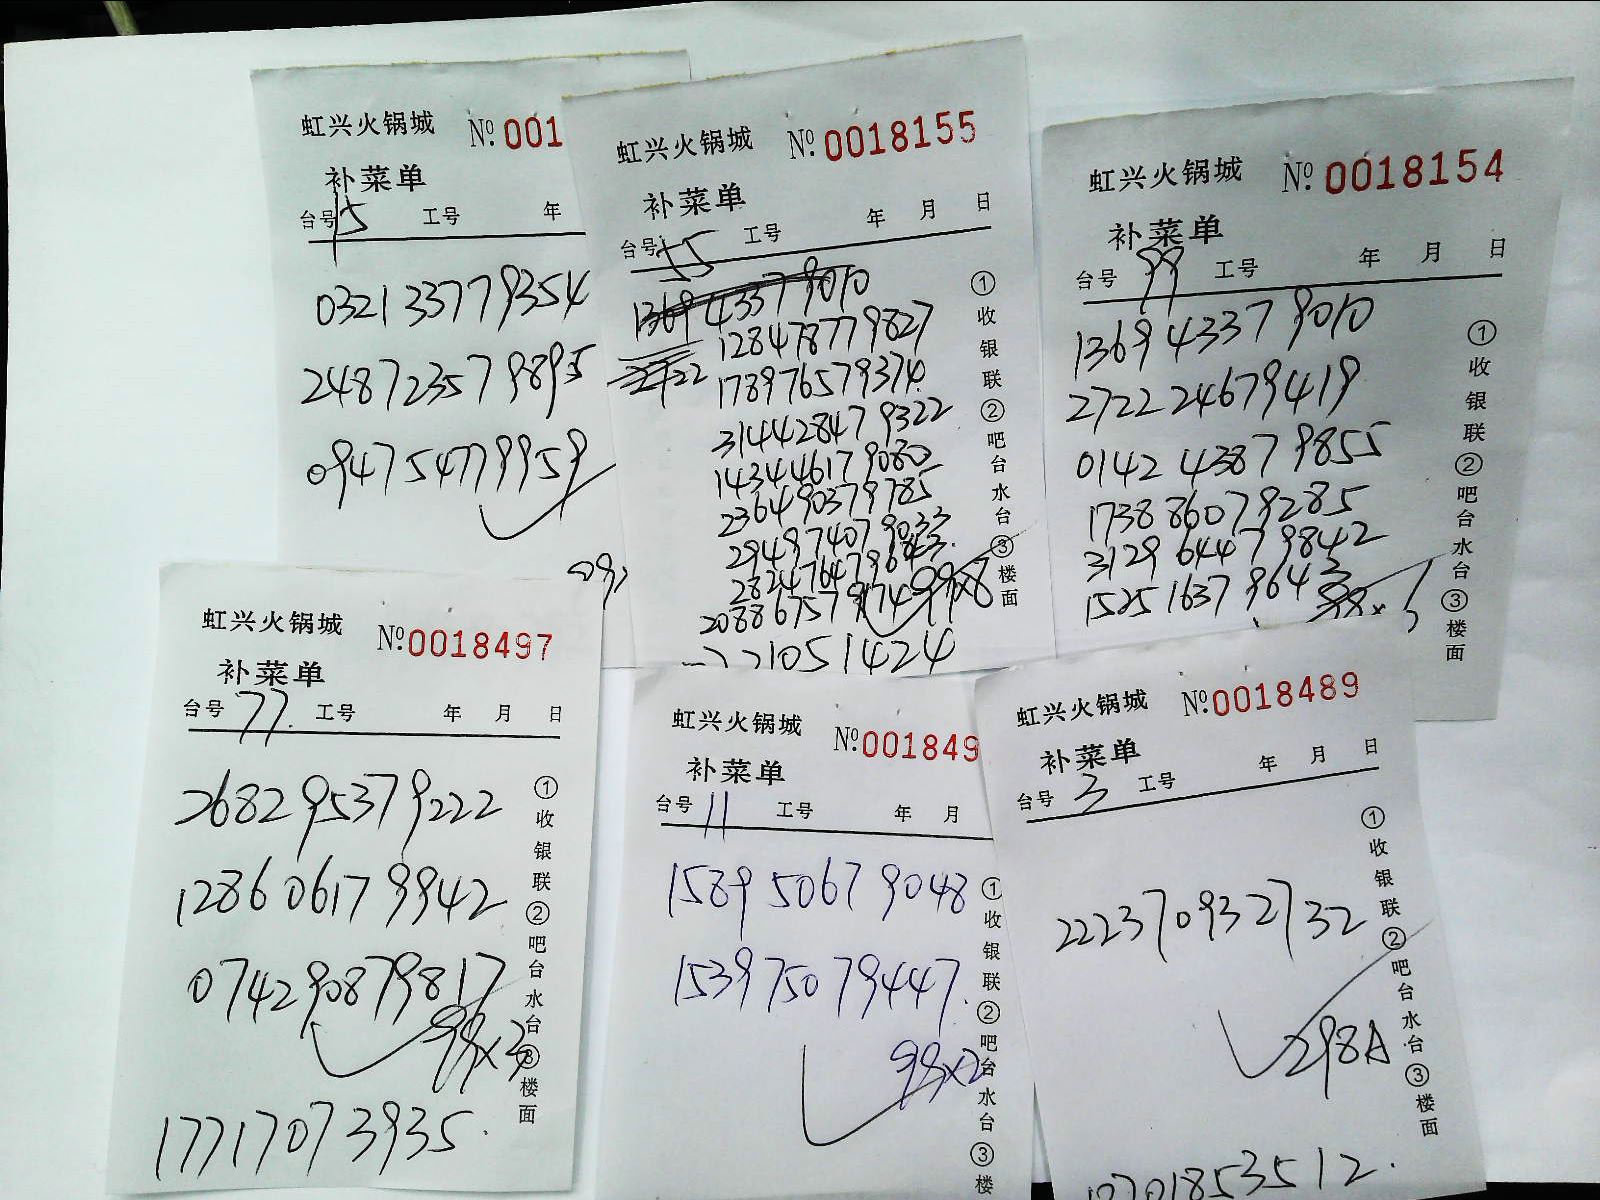 虹兴火锅城 №:001
补菜单
台号 15 工号 年
0321 33779354
248723579895
094754779959
虹兴火锅城 №:0018155
补菜单
台号 55 工号 年 月 日
136943379010
128478779827
178976579374
314428479322
1434446179080
236490379785
294974079033
282476479643
208867579174
99×8
1051424
①收银联②吧台水台③楼面
虹兴火锅城 №:0018154
补菜单
台号 99 工号 年 月 日
1369 43379010
272224679419
0142 43879855
173886079285
3129 64479842
152516379643
①收银联②吧台水台③楼面
虹兴火锅城 №:0018497
补菜单
台号 77. 工号 年 月 日
268295379222
128606179942
074290879817
99×3
17717073935.
①收银联②吧台水台③楼面
虹兴火锅城 №:001849
补菜单
台号 11 工号 年 月
158950679048
153975079447.
99×2
①收银联②吧台水台③楼
虹兴火锅城 №:0018489
补菜单
台号 3 工号 年 月 日
222370932732
298A
01853512.
①收银联②吧台水台③楼面